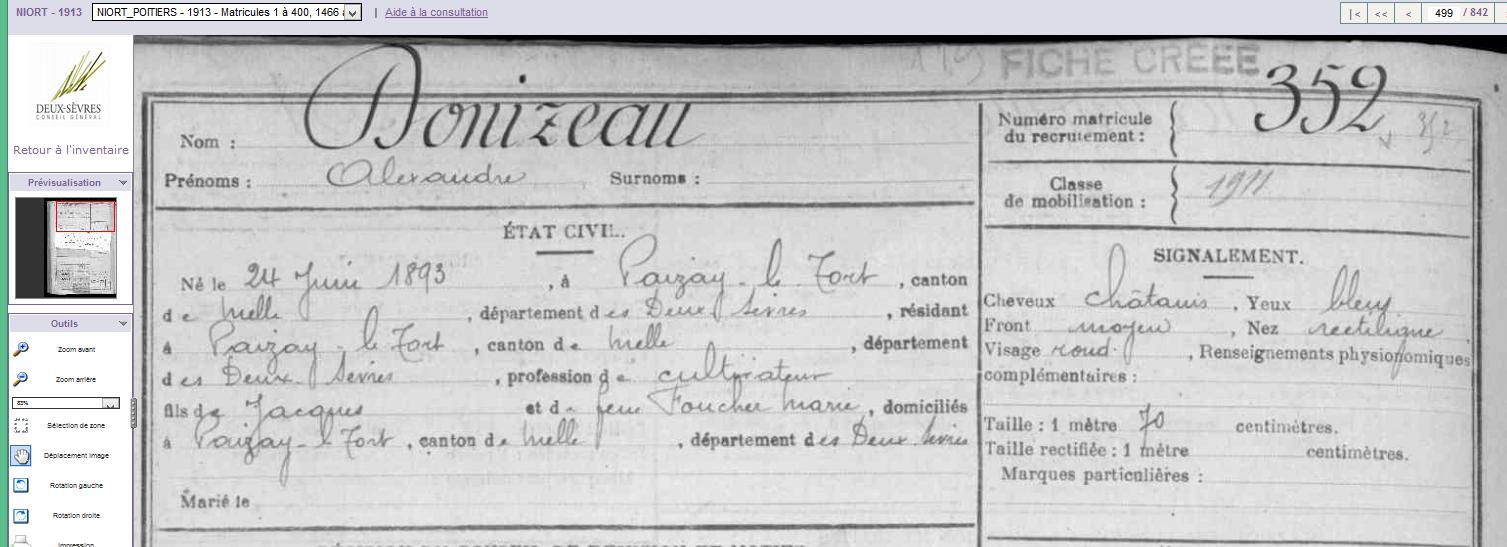 NIORT - 1913 NIORT_POITIERS - 1913 - Matricules 1 à 400, 1466 | Aide à la consultation |< << < 499 / 842
DEUX-SÈVRES
CONSEIL GÉNÉRAL
Retour à l'inventaire
Prévisualisation
Outils
Zoom avant
Zoom arrière
83%
Sélection de zone
Déplacement image
Rotation gauche
Rotation droite
Impression
FICHE CREEE
Nom : Donizeau
Prénoms : Alexandre Surnoms :
Numéro matricule
du recrutement : 352 352
Classe
de mobilisation : 1911
ÉTAT CIVIL.
Né le 24 Juin 1893, à Paizay-le Tort, canton
de Melle, département des Deux Sèvres, résidant
à Paizay-le Tort, canton de Melle, département
des Deux Sèvres, profession de cultivateur
fils de Jacques et de feue Foucher Marie, domiciliés
à Paizay-le Tort, canton de Melle, département des Deux Sèvres
Marié le
SIGNALEMENT.
Cheveux châtains, Yeux bleus
Front moyen, Nez rectiligne
Visage rond, Renseignements physionomiques
complémentaires :
Taille : 1 mètre 70 centimètres.
Taille rectifiée : 1 mètre centimètres.
Marques particulières :